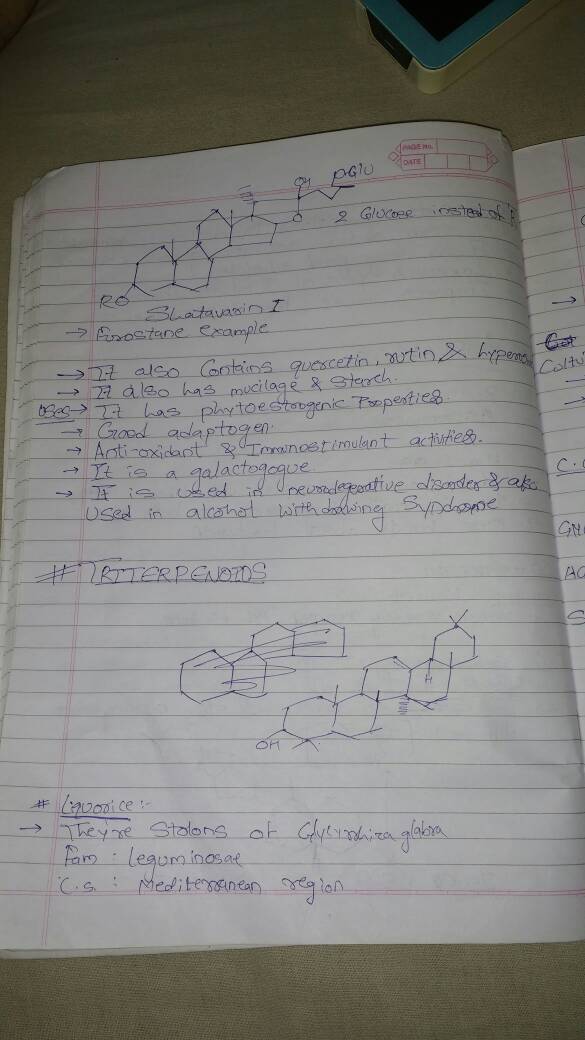 PAGE No.
DATE
OH
O-Glu
O
2 Glucose instead of
RO
Shatavarin I
→ Furostane example
→ It also Contains quercetin, rutin &
→ It also has mucilage & Starch.
Uses→ It has phytoestrogenic Properties.
→ Good adaptogen.
→ Anti-oxidant & Immunostimulant activities.
→ It is a galactogogue
→ It is used in neurodegerative disorder & also
Used in alcohol withdrawing Syndrome
# TRITERPENOIDS
H
OH
# Liquorice :-
→ They're Stolons of Glycyrrhiza glabra
Fam : Leguminosae
C.S. : Mediterranean region
→
Cultiv
→
→
C.C
AC
S